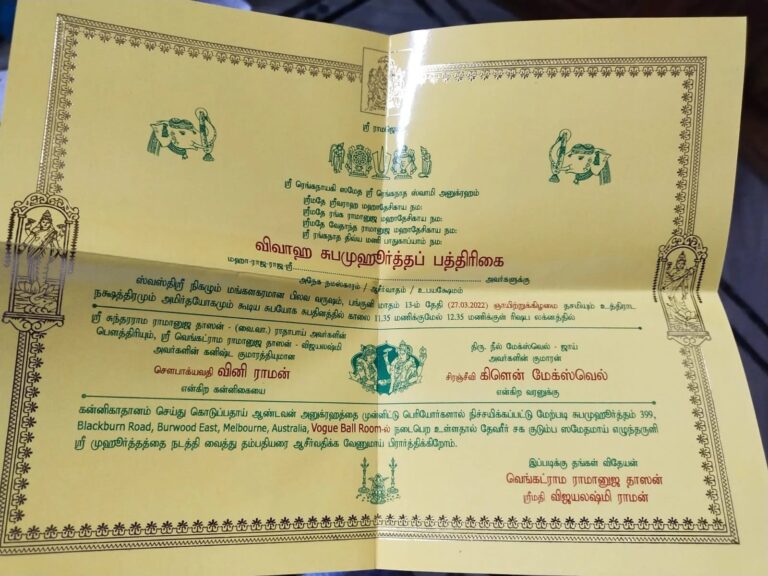 ஸ்ரீ
ஸ்ரீ ரெங்கநாயகி ஸமேத ஸ்ரீ ரெங்கநாத ஸ்வாமி அனுக்ரஹம்
ஸ்ரீமதே ஸ்ரீவராஹ மஹாதேசிகாய நம:
ஸ்ரீமதே ரங்க ராமானுஜ மஹாதேசிகாய நம:
ஸ்ரீமதே வேதாந்த ராமானுஜ மஹாதேசிகாய நம:
ஸ்ரீ ரங்கநாத திவ்ய மணி பாதுகாப்யாம் நம:
விவாஹ சுபமுஹூர்த்தப் பத்திரிகை
மஹா-ராஜ-ராஜ-ஸ்ரீ........................................ அவர்களுக்கு
அநேக நமஸ்காரம் / ஆசீர்வாதம் / உபயக்ஷேமம்
ஸ்வஸ்திஸ்ரீ நிகழும் மங்கனகரமான பிலவ வருஷம், பங்குனி மாதம் 13-ம் தேதி (27.03.2022) ஞாயிற்றுக்கிழமை தசமியும் உத்திராட
நக்ஷத்திரமும் அமிர்தயோகமும் கூடிய சுபயோக சுபதினத்தில் காலை 11.35 மணிக்குமேல் 12.35 மணிக்குள் ரிஷப லக்னத்தில்
ஸ்ரீ சுந்தரராம ராமானுஜ தாஸன் - (லை.வா.) ராதாபாய் அவர்களின்
பௌத்திரியும், ஸ்ரீ வெங்கட்ராம ராமானுஜ தாஸன் - விஜயலஷ்மி
அவர்களின் கனிஷ்ட குமாரத்தியுமான
சௌபாக்யவதி வினி ராமன்
என்கிற கன்னிகையை
திரு. நீல் மேக்ஸ்வெல் - ஜாய்
அவர்களின் குமாரன்
சிரஞ்சீவி கிளென் மேக்ஸ்வெல்
என்கிற வரனுக்கு
கன்னிகாதானம் செய்து கொடுப்பதாய் ஆண்டவன் அனுக்ரஹத்தை முன்னிட்டு பெரியோர்களால் நிச்சயிக்கப்பட்டு மேற்படி சுபமுஹூர்த்தம் 399,
Blackburn Road, Burwood East, Melbourne, Australia, Vogue Ball Room-ல் நடைபெற உள்ளதால் தேவரீர் சக குடும்ப ஸமேதமாய் எழுந்தருளி
ஸ்ரீ முஹூர்த்தத்தை நடத்தி வைத்து தம்பதியரை ஆசீர்வதிக்க வேணுமாய் பிரார்த்திக்கிறோம்.
இப்படிக்கு தங்கள் விதேயன்
வெங்கட்ராம ராமானுஜ தாஸன்
ஸ்ரீமதி விஜயலஷ்மி ராமன்